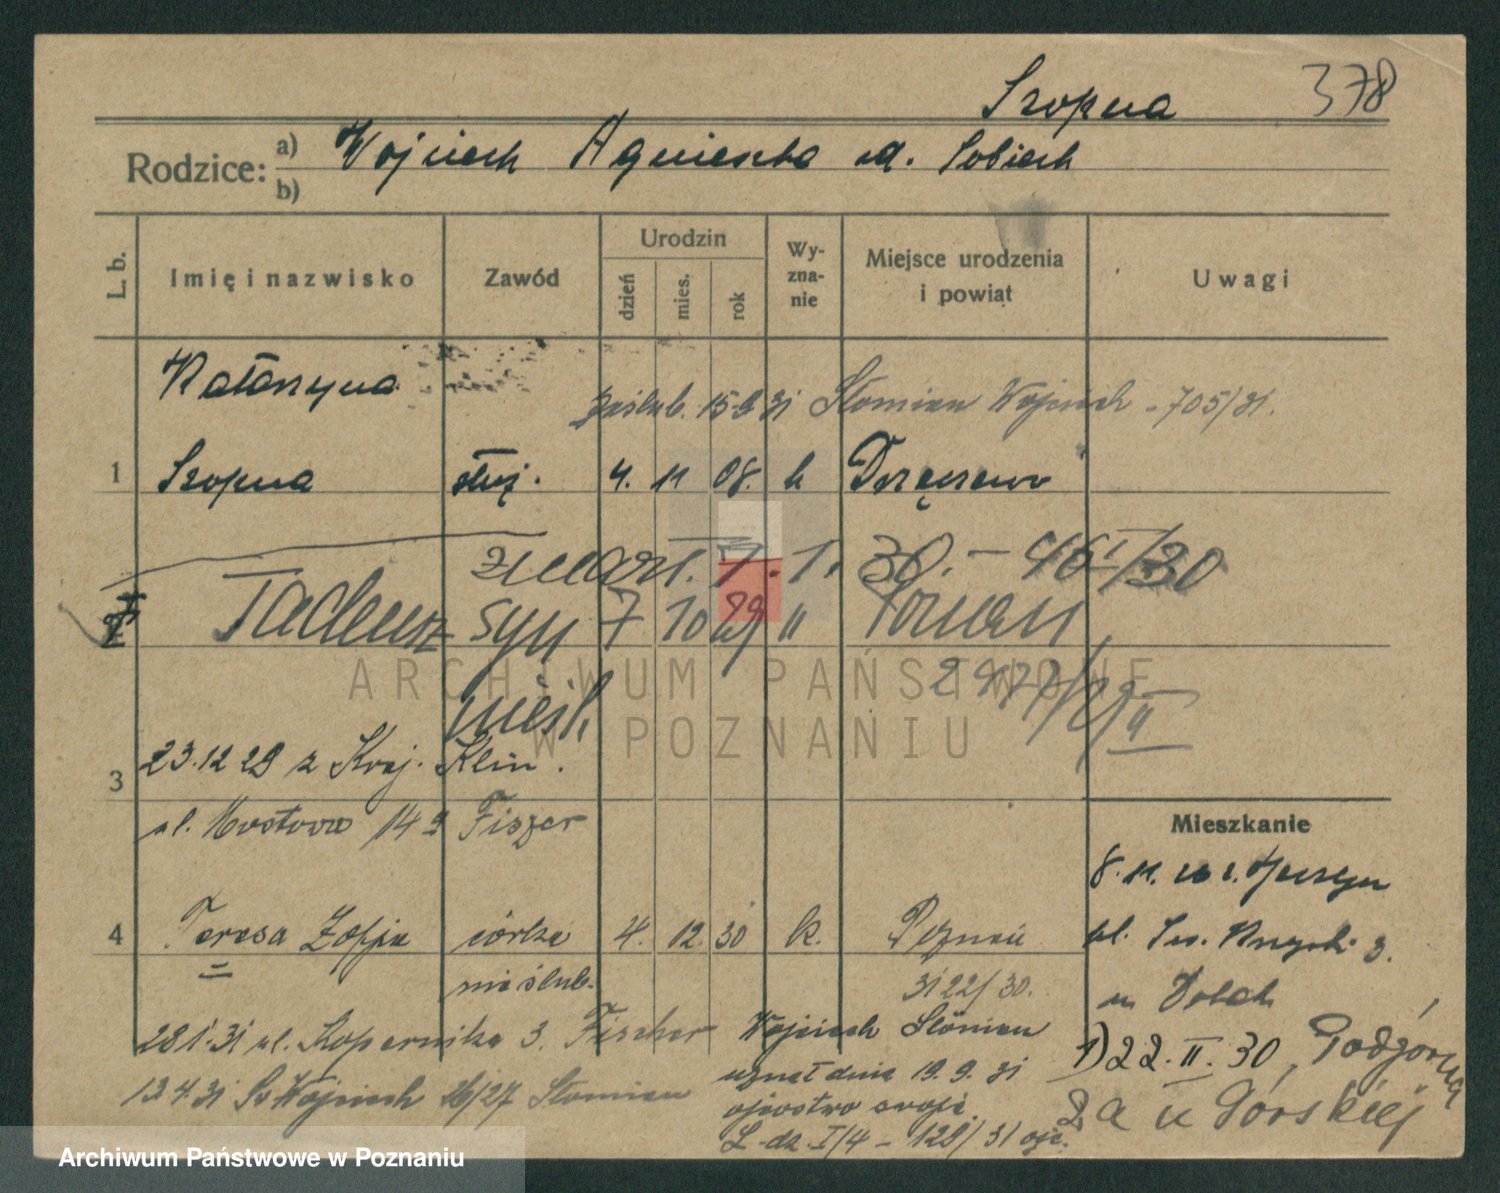 Szopna 378
Rodzice: a) Wojciech Agnieszka Sobiech
b)
L. b. Imię i nazwisko Zawód Urodzin dzień mies. rok Wyznanie Miejsce urodzenia i powiat Uwagi
Katarzyna
zaślub. 15 31 Słomian Wojciech - 705/31.
1 Szopna służ. 4. 11 08. k
zmarł. 7. 1. 30. - 46 I/30
2 Tadeusz syn 7 10 29 " Poznań
nieśl.
3 23.12 29 z Kraj. Klin.
ul. Mostowa 14 Fiszer
Mieszkanie
8. 11.
4 Teresa Zofja córka 4. 12. 30 k. Poznań
ul. 3.
nieślub. 3122/30.
28 1. 31 ul. Kopernika 3. Fischer Wojciech Słomian
1) 22. II. 30, Podgórna
13.4.31 Św Wojciech 26/27 Słomian
uznał dnia 19. 9. 31
ojcostwo swoje.
2a u Górskiej
L. dz. I/4 - 128/31 ojc.
ARCHIWUM PAŃSTWOWE
W POZNANIU
Archiwum Państwowe w Poznaniu